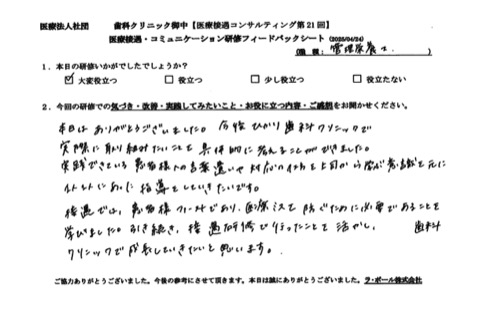 医療法人社団　　歯科クリニック御中【医療接遇コンサルティング第21回】
医療接遇・コミュニケーション研修フィードバックシート (2025/04/24)
(職 種: 管理栄養士 )
1．本日の研修いかがでしたでしょうか？
☑ 大変役立つ　□ 役立つ　□ 少し役立つ　□ 役立たない
2．今回の研修での気づき・改善・実践してみたいこと・お役に立つ内容・ご感想をお聞かせください。
本日は ありがとうございました。今後 ひかり 歯科クリニックで
実際に取り組みたいことを 具体的に考えることができました。
実践できている 患者様への言葉遣いや対応の仕方を 上司から学ぶ意識を元に
指導をしていきたいです。
接遇では、患者様ファーストであり、医療ミスを防ぐために必要であることを
学びました。引き続き、接遇研修で行ったことを 活かし、　歯科
クリニックで 成長していきたいと思います。
ご協力ありがとうございました。今後の参考にさせて頂きます。本日は誠にありがとうございました。ラ・ポール株式会社